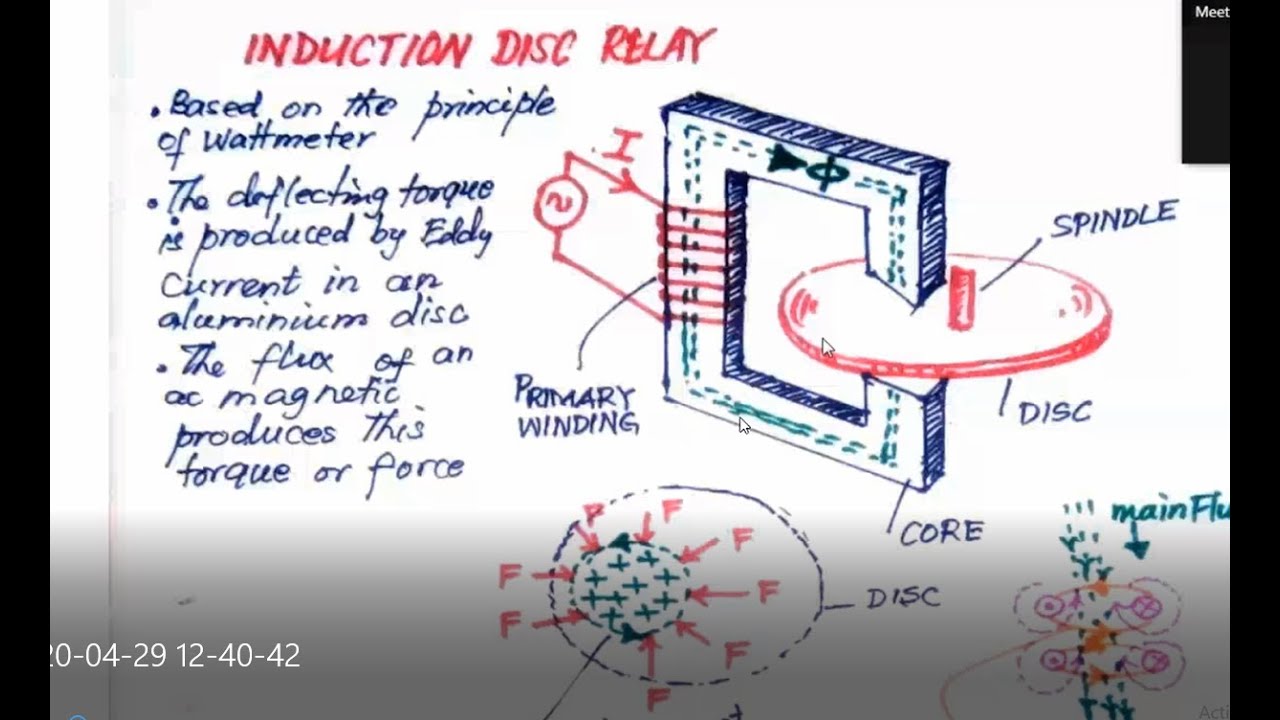 Meet
INDUCTION DISC RELAY
• Based on the principle
of Wattmeter
• The deflecting torque
is produced by Eddy
Current in an
aluminium disc
• The flux of an
ac magnetic
produces this
torque or force
I
ϕ
SPINDLE
PRIMARY
WINDING
DISC
CORE
main Flu
F
F
F
F
F
F
F
F
DISC
20-04-29 12-40-42
Acti